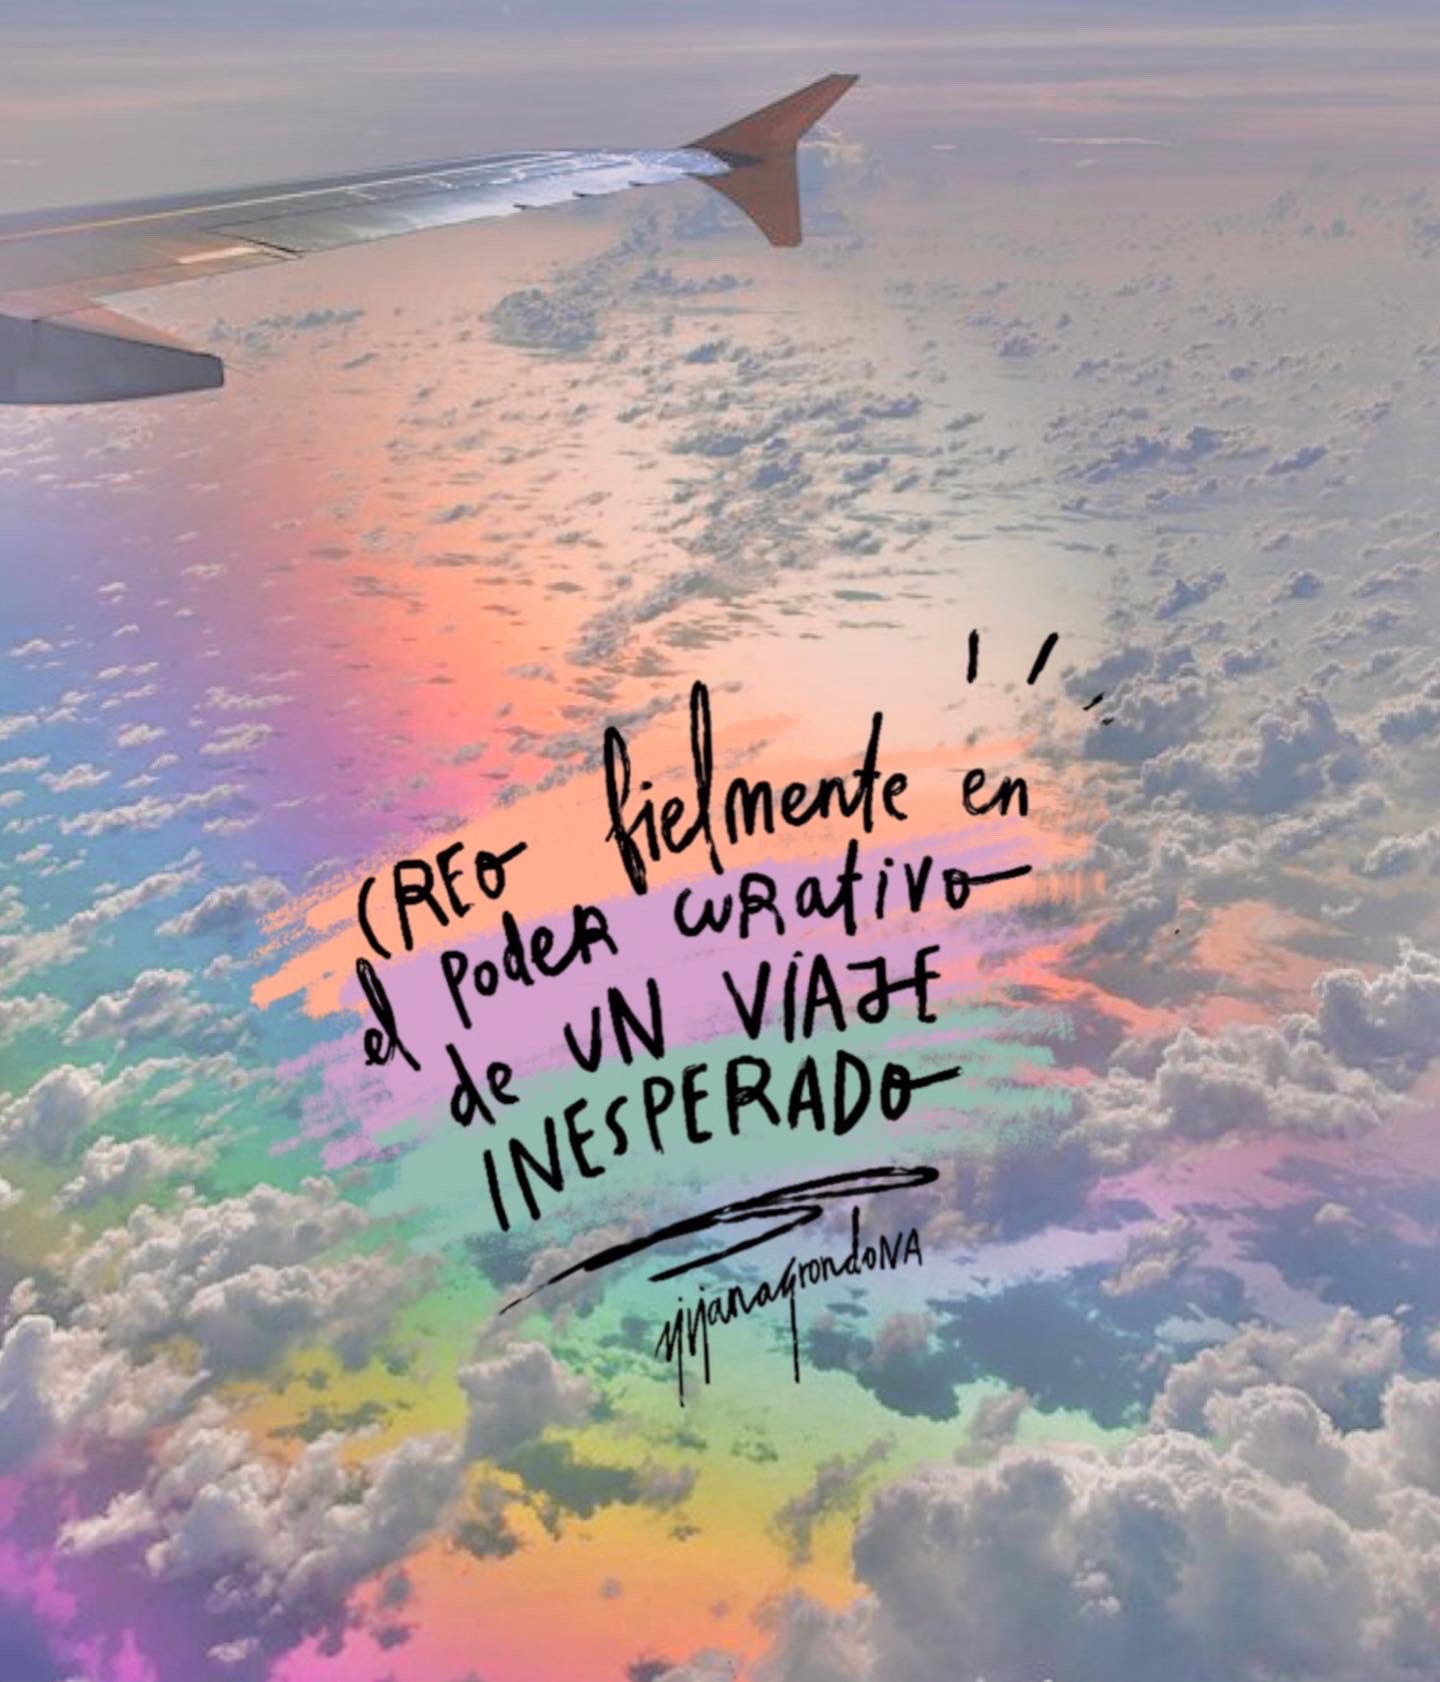 CREO fielmente en
el PodeR cuRativo
de UN VIAJE
INESPERADO
jijanagrondoNA